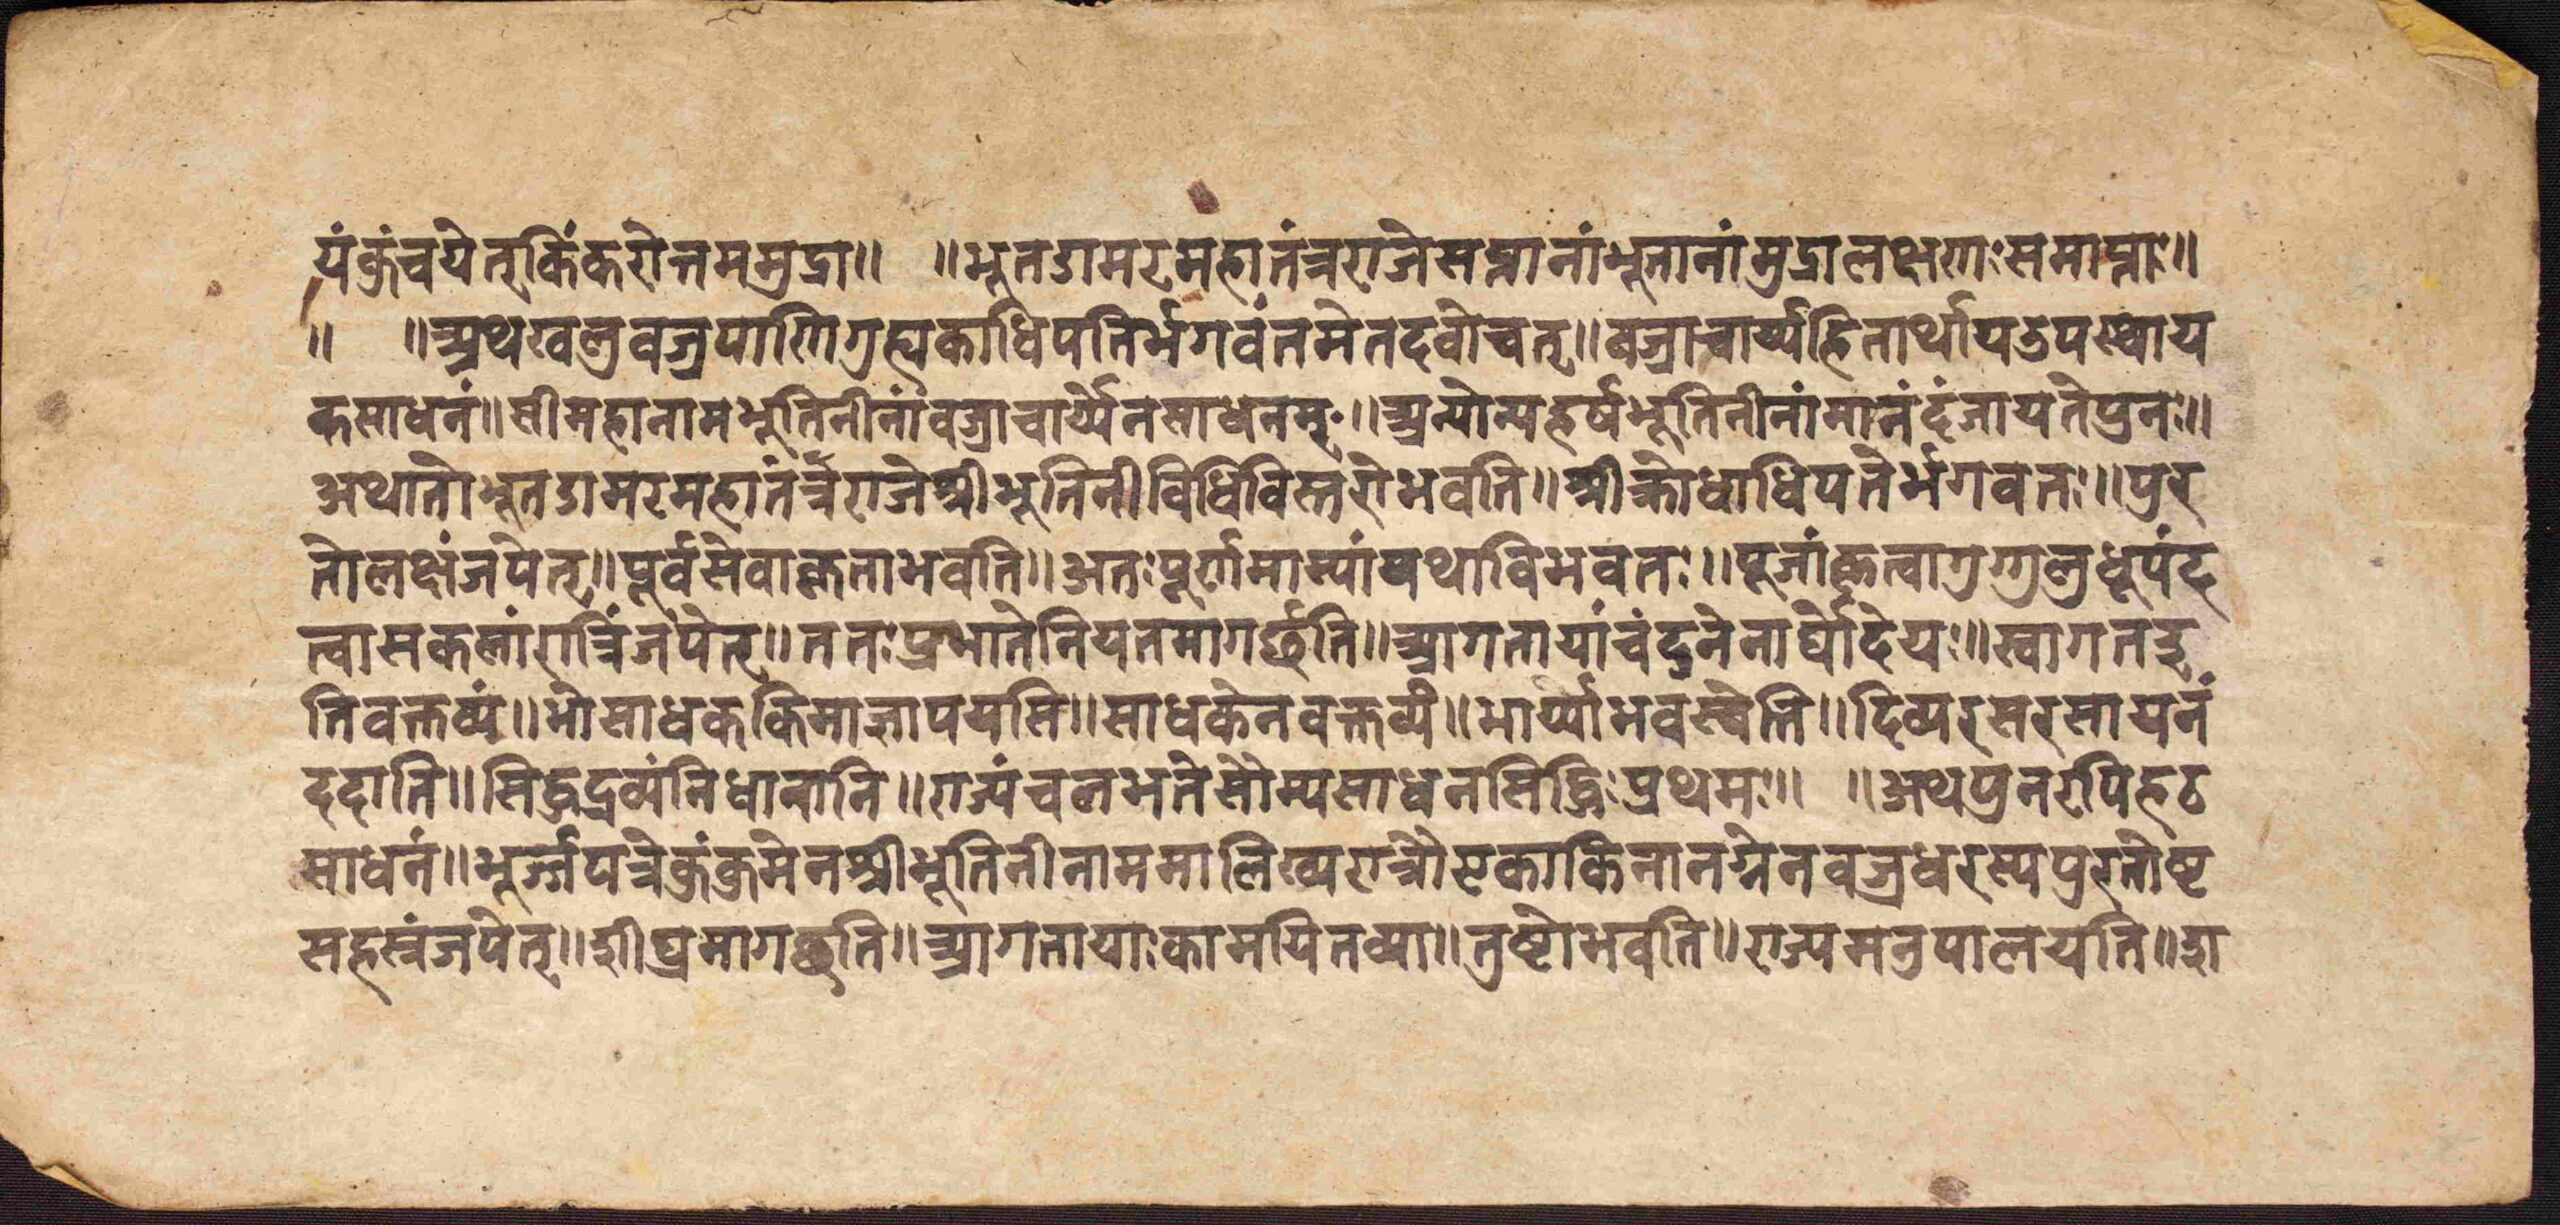 यंक्रुंचयेत्किंकरोत्तममुद्रा॥ ॥भूतडामरमहातंत्रराजेसप्तानांभूतानांमुद्रालक्षणाःसमाप्ताः॥
॥ ॥अथखलुवज्रपाणिगुह्यकाधिपतिर्भगवंतमेतदवोचत्॥वज्राचार्य्यहितार्थायउपस्थाय
कसाधनं॥सीमहानामभूतिनीनांवज्राचार्य्येनसाधनम्॥अन्योन्यहर्षभूतिनीनांमानंदंजायतेपुनः॥
अथातोभूतडामरमहातंर्त्रराजेश्रीभूतिनीविधिविस्तरोभवति॥श्रीक्रोधाधिपतेर्भगवतः॥पुर
तोलक्षंजपेत्॥पूर्वसेवाकृताभवति॥अतःपूर्णमाम्यांयथाविभवतः॥पूजांकृत्वागुग्गुलुधूपंद
त्वासकलांरात्रिंजपेत्॥ततःप्रभातेनियतमागर्छति॥आगतायांचंदनेनार्घोदेयः॥स्वागतइ
तिवक्तव्यं॥भोसाधककिमाज्ञापयसि॥साधकेनवक्तव्यं॥भार्य्याभवस्वेति॥दिव्यरसरसायनं
ददाति॥सिद्धद्रव्यंनिधानानि॥राज्यंचलभतेसौम्यसाधनसिद्धिःप्रथमः॥ ॥अथपुनरपिहठ
साधनं॥भूर्ज्जपत्रेकुंकुमेनश्रीभूतिनीनाममालिख्यरात्रौएकाकिनानग्नेनवज्रधरस्यपुरतोष्ट
सहस्रंजपेत्॥शीघ्रमागछति॥आगतायाःकामयितव्या॥तुष्टोभवति॥राज्यमनुपालयति॥दा